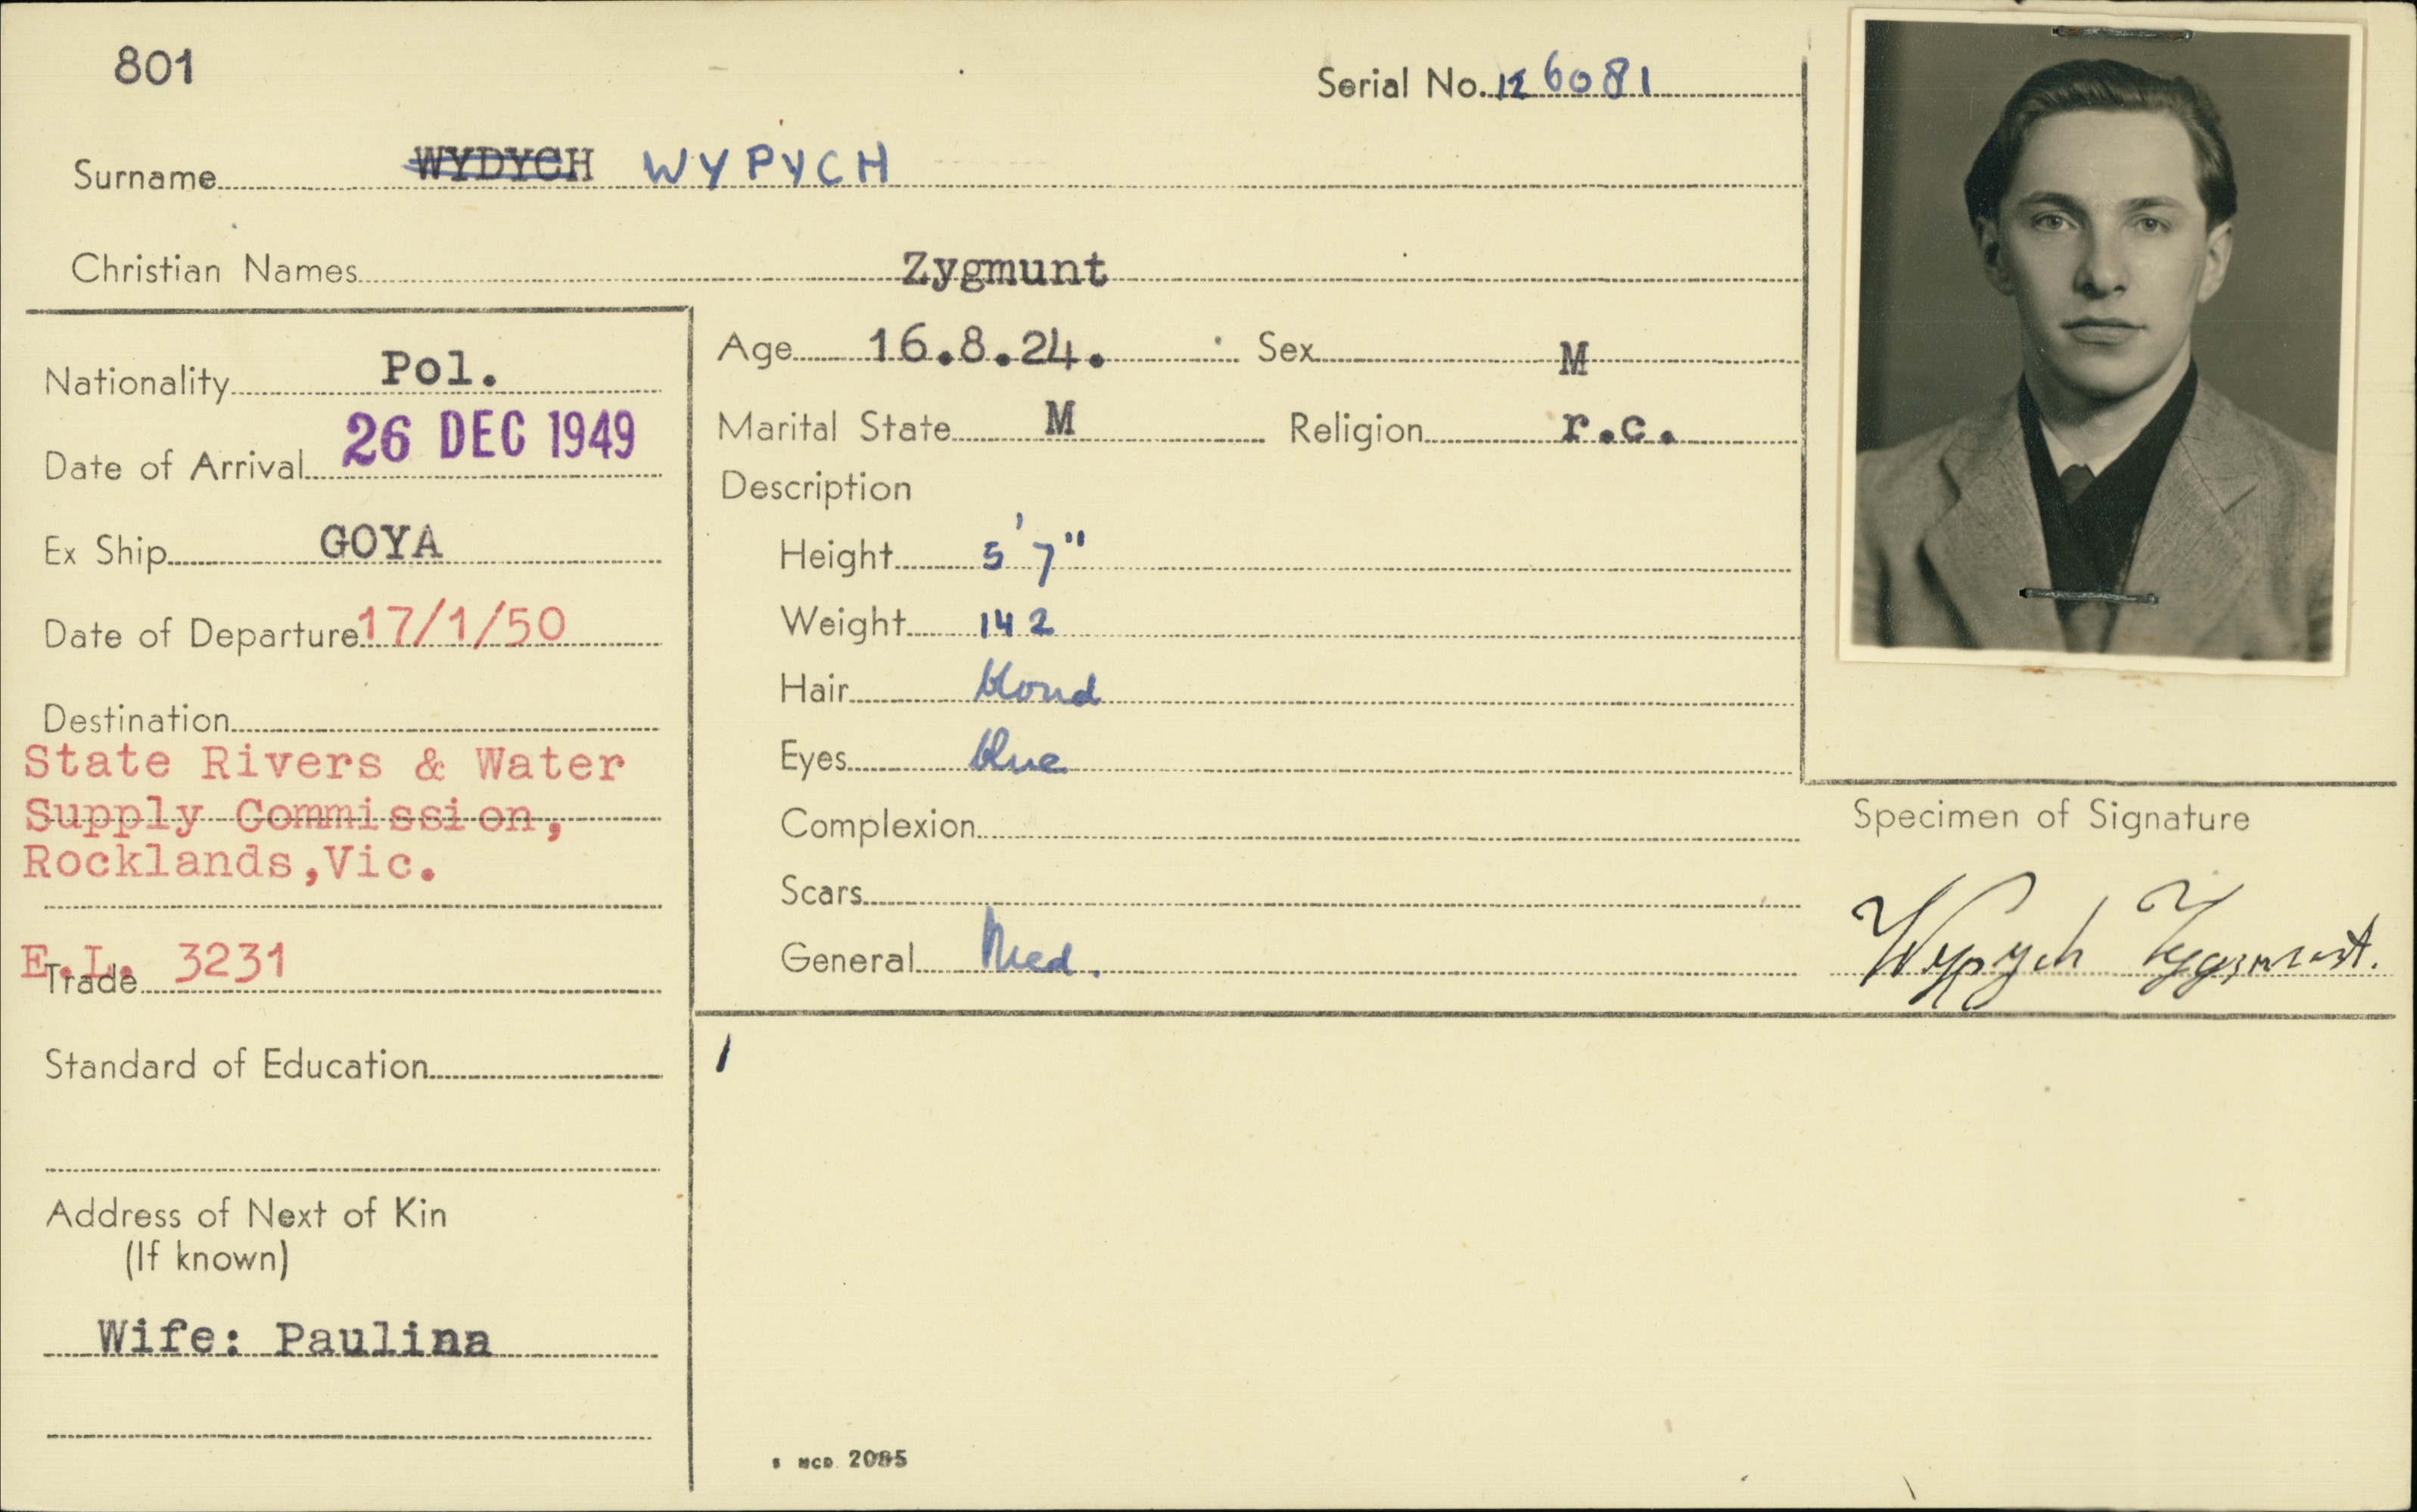 801
Serial No. 126081
Surname WYDYCH WYPYCH
Christian Names Zygmunt
Nationality Pol.
Date of Arrival 26 DEC 1949
Ex Ship GOYA
Date of Departure 17/1/50
Destination
State Rivers & Water
Supply Commission,
Rocklands,Vic.
E.L. 3231
Trade
Standard of Education
Address of Next of Kin
(If known)
Wife: Paulina
Age 16.8.24. Sex M
Marital State M Religion r.c.
Description
Height 5' 7"
Weight 142
Hair blond
Eyes blue
Complexion
Scars
General Med.
Specimen of Signature
Wypych Zygmunt.
1
2085